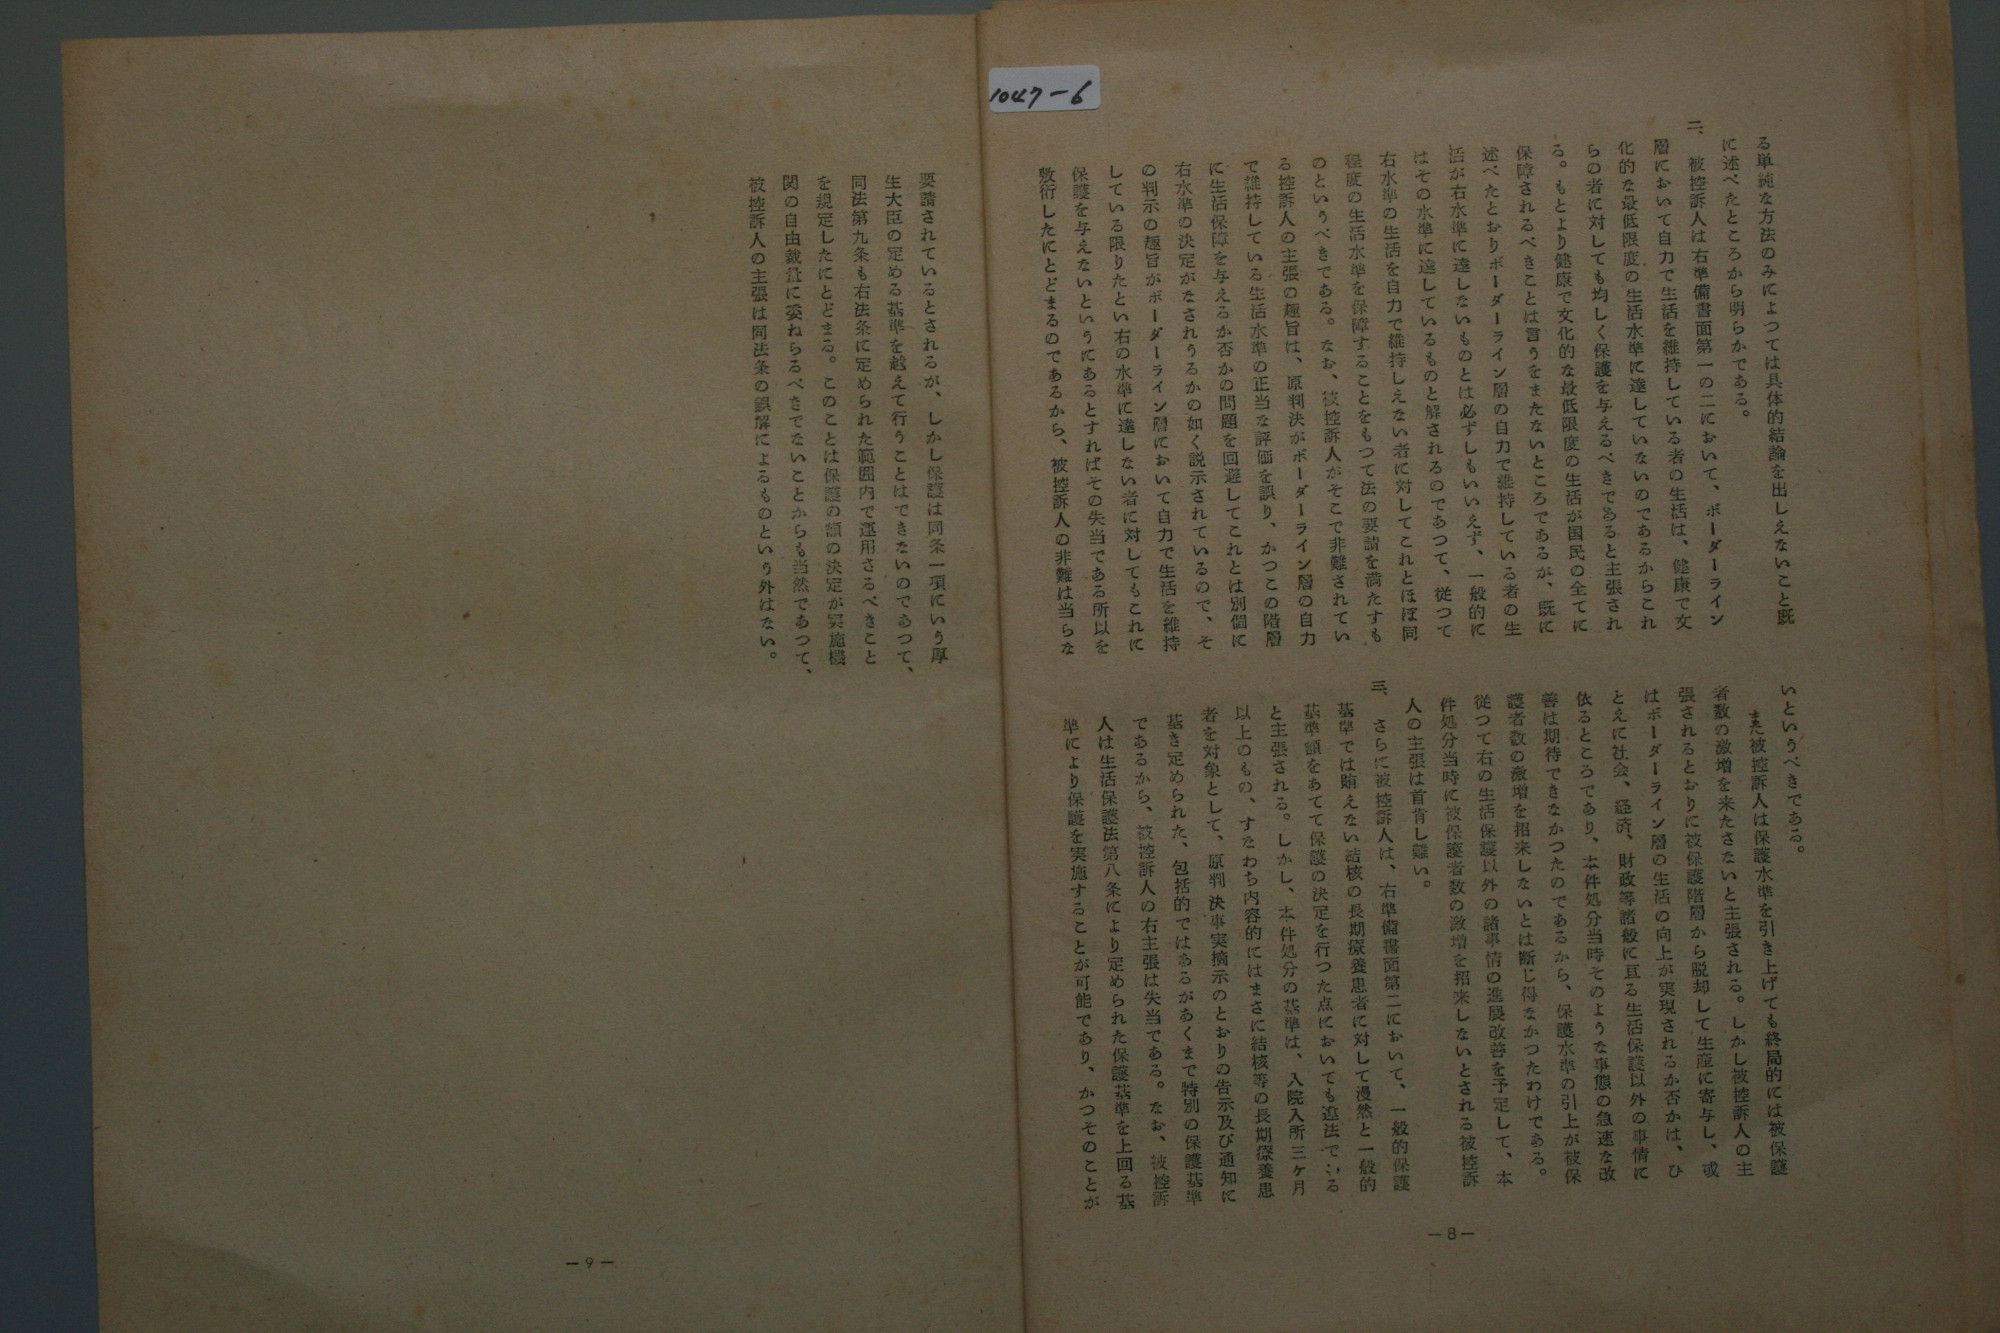 1047-6
る単純な方法のみによつては具体的結論を出しえないこと既
に述べたところから明らかである。
二、被控訴人は右準備書面第一の二において、ボーダーライン
層において自力で生活を維持している者の生活は、健康で文
化的な最低限度の生活水準に達していないのであるからこれ
らの者に対しても均しく保護を与えるべきであると主張され
る。もとより健康で文化的な最低限度の生活が国民の全てに
保障されるべきことは言うをまたないところであるが、既に
述べたとおりボーダーライン層の自力で維持している者の生
活が右水準に達しないものとは必ずしもいいえず、一般的に
はその水準に達しているものと解されるのであつて、従つて
右水準の生活を自力で維持しえない者に対してこれとほぼ同
程度の生活水準を保障することをもつて法の要請を満たすも
のというべきである。なお、被控訴人がそこで非難されてい
る控訴人の主張の趣旨は、原判決がボーダーライン層の自力
で維持している生活水準の正当な評価を誤り、かつこの階層
に生活保障を与えるか否かの問題を回避してこれとは別個に
右水準の決定がなされうるかの如く説示されているので、そ
の判示の趣旨がボーダーライン層において自力で生活を維持
している限りたとい右の水準に達しない者に対してもこれに
保護を与えないというにあるとすればその失当である所以を
敷衍したにとどまるのであるから、被控訴人の非難は当らな
いというべきである。
また被控訴人は保護水準を引き上げても終局的には被保護
者数の激増を来たさないと主張される。しかし被控訴人の主
張されるとおりに被保護階層から脱却して生産に寄与し、或
はボーダーライン層の生活の向上が実現されるか否かは、ひ
とえに社会、経済、財政等諸般に亘る生活保護以外の事情に
依るところであり、本件処分当時そのような事態の急速な改
善は期待できなかつたのであるから、保護水準の引上が被保
護者数の激増を招来しないとは断じ得なかつたわけである。
従つて右の生活保護以外の諸事情の進展改善を予定して、本
件処分当時に被保護者数の激増を招来しないとされる被控訴
人の主張は首肯し難い。
三、さらに被控訴人は、右準備書面第二において、一般的保護
基準では賄えない結核の長期療養患者に対して漫然と一般的
基準額をあてて保護の決定を行つた点においても違法である
と主張される。しかし、本件処分の基準は、入院入所三ケ月
以上のもの、すなわち内容的にはまさに結核等の長期療養患
者を対象として、原判決事実摘示のとおりの告示及び通知に
基き定められた、包括的ではあるがあくまで特別の保護基準
であるから、被控訴人の右主張は失当である。なお、被控訴
人は生活保護法第八条により定められた保護基準を上回る基
準により保護を実施することが可能であり、かつそのことが
—8—
要請されているとされるが、しかし保護は同条一項にいう厚
生大臣の定める基準を越えて行うことはできないのであつて、
同法第九条も右法条に定められた範囲内で運用さるべきこと
を規定したにとどまる。このことは保護の額の決定が実施機
関の自由裁量に委ねらるべきでないことからも当然であつて、
被控訴人の主張は同法条の誤解によるものという外はない。
—9—